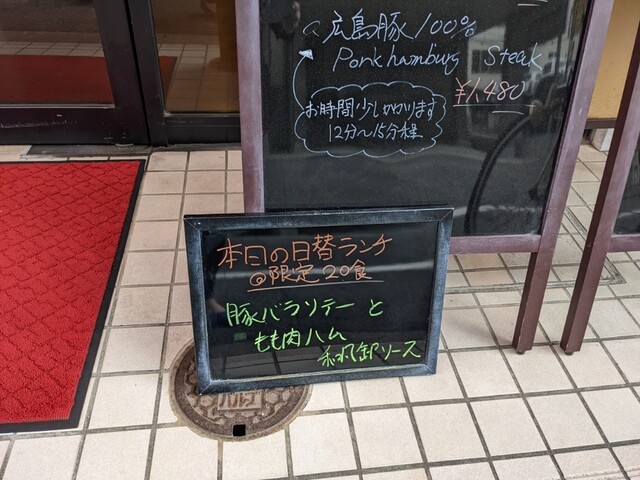 @ 広島豚100%
Pork hamburg Steak
¥1,480
お時間少しかかります
12分〜15分様
本日の日替ランチ
@限定20食
豚バラソテーと
もも肉ハム
和風卸ソース